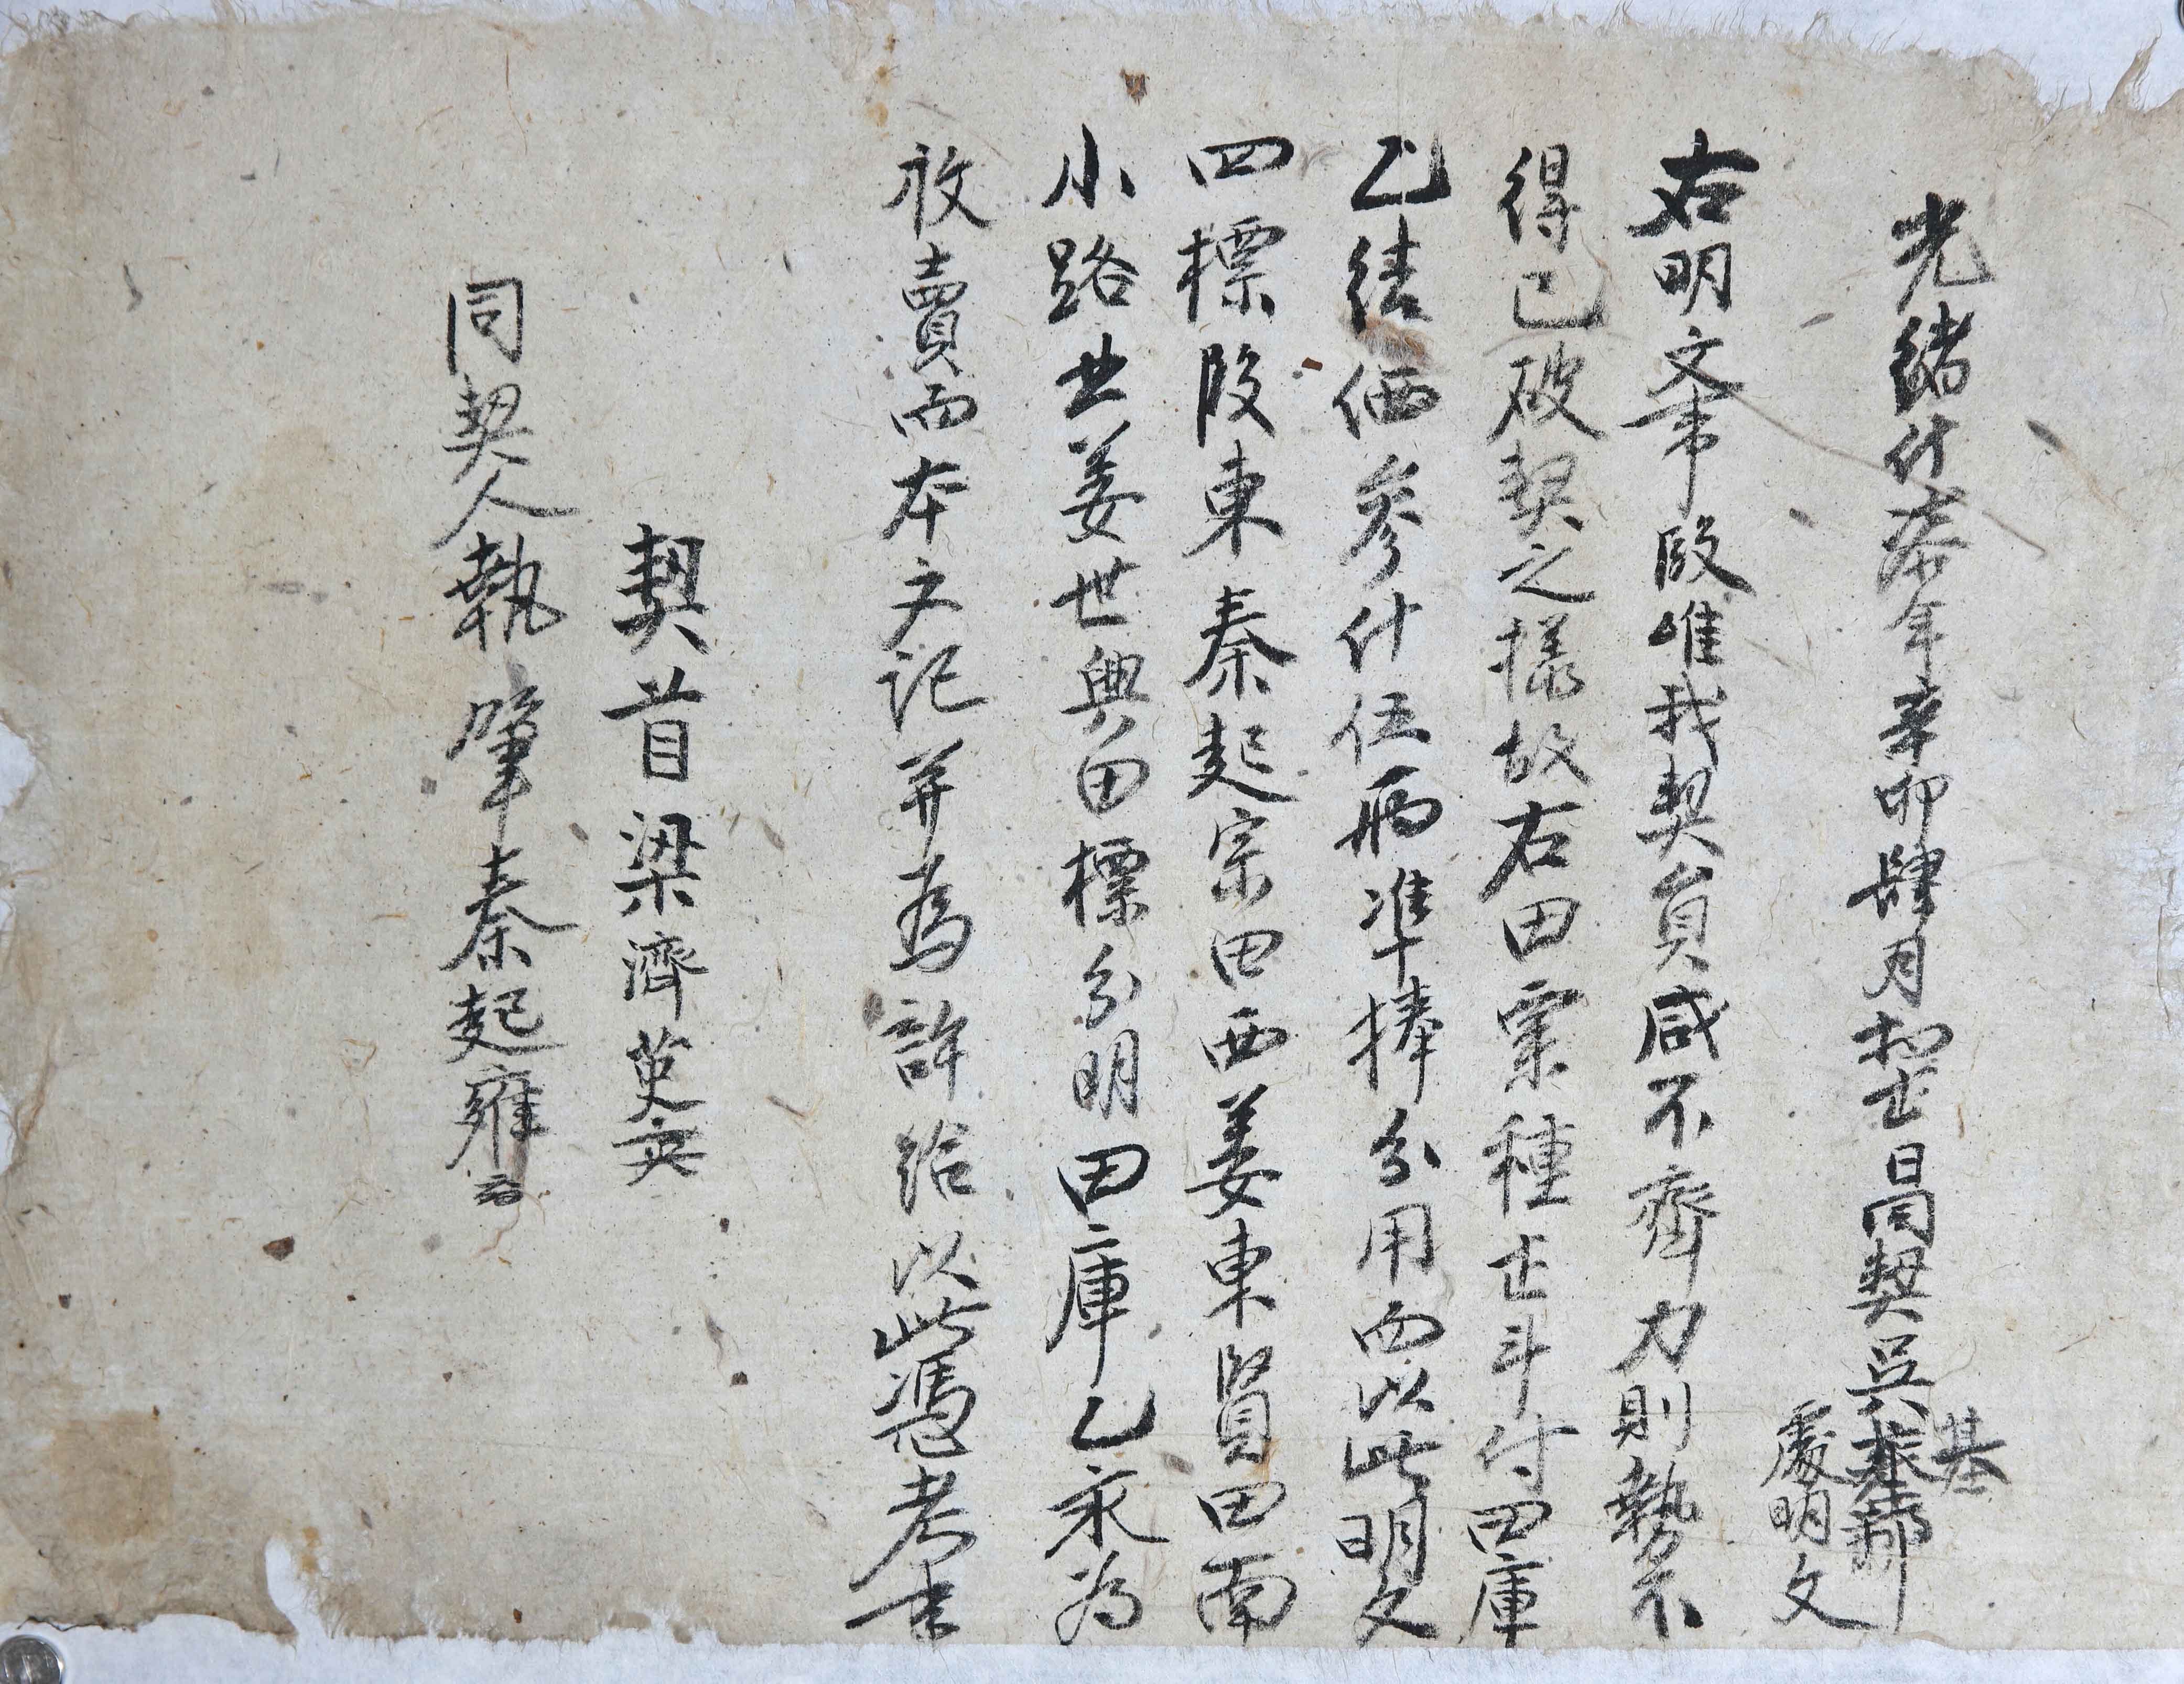 光緒什柒年辛卯肆月初七日同契吳基
處明文
右明文事段唯我契員咸不齊力則勢不
得已破契之樣故右田粟種七斗付田庫
乙結価參什伍兩準捧分用而以此明文
四標段東秦起宗田西姜東賢田南
小路北姜世興田標分明田庫乙永爲
放賣而本文記并爲許給以此憑考事
契首梁濟英
同契人執筆秦起雍